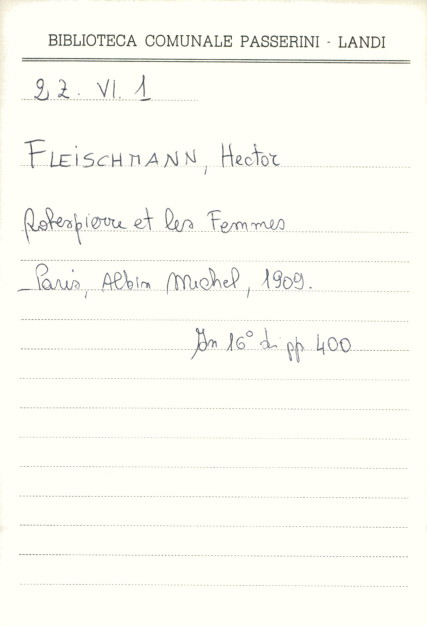 BIBLIOTECA COMUNALE PASSERINI - LANDI
2Z. VI. 1
FLEISCHMANN, Hector
Robespierre et les Femmes
Paris, Albin Michel, 1909.
In 16° di pp 400